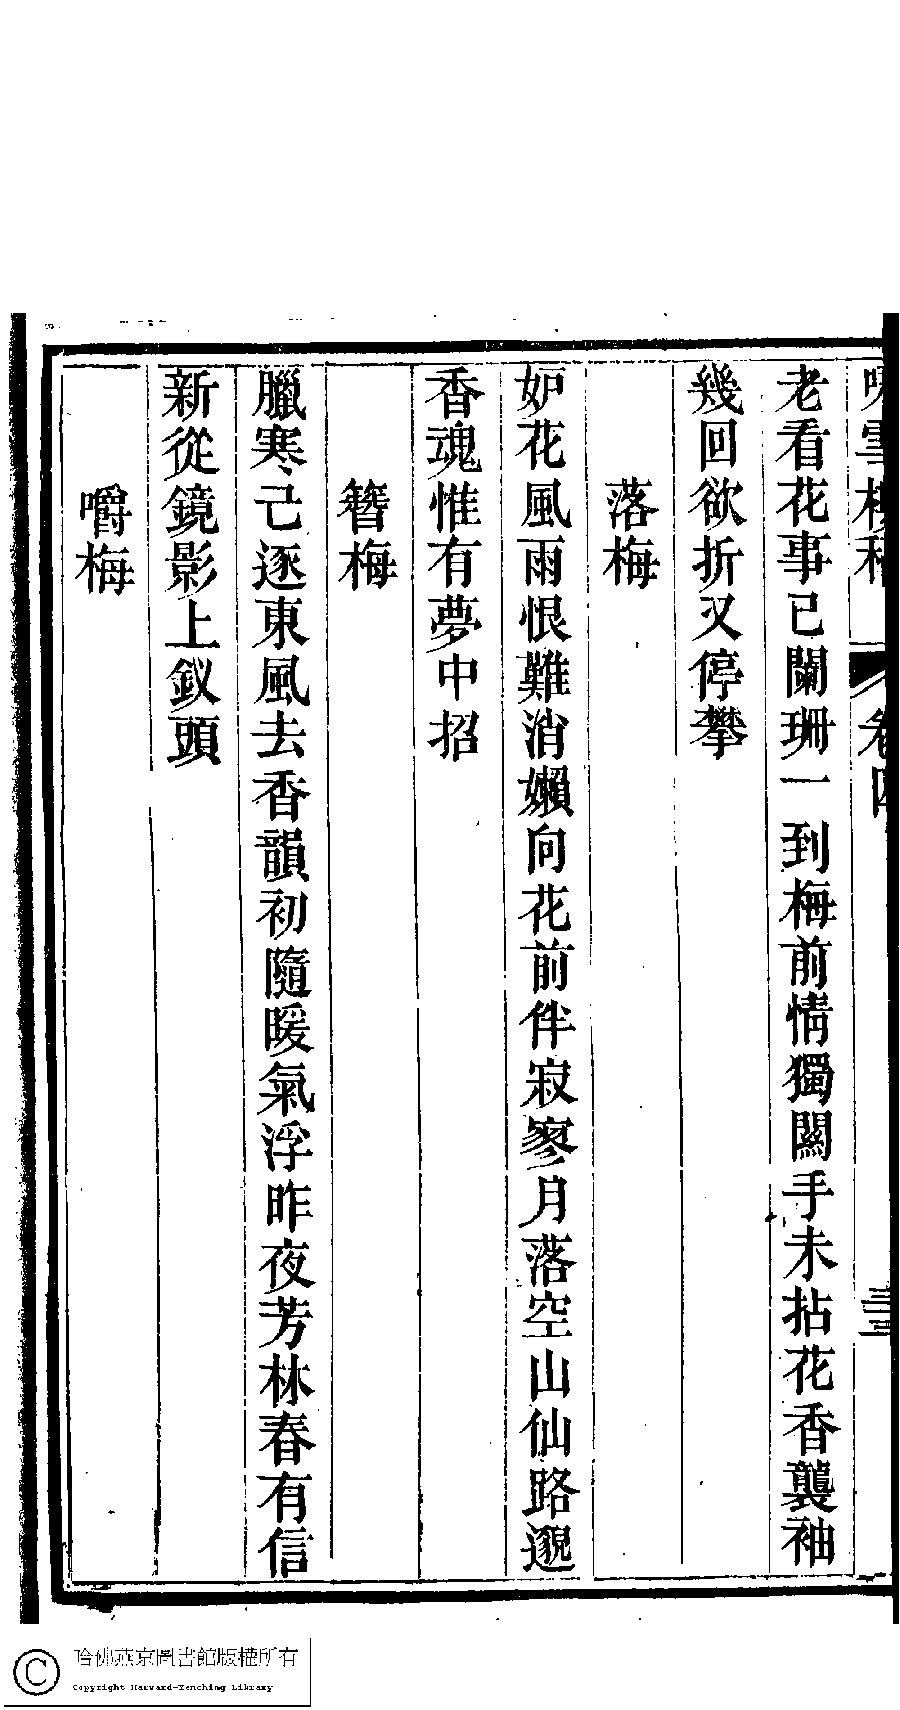 老看花事已闌珊一到梅前情獨關手未拈花香襲袖
幾回欲折又停攀
落梅
妒花風雨恨難消嬾向花前伴寂寥月落空山仙路邈
香魂惟有夢中招
簪梅
臘寒己逐東風去香韻初隨暖氣浮昨夜芳林春有信
新從鏡影上釵頭
嚼梅
哈佛燕京圖書館版權所有
Copyright Harvard-Yenching Library